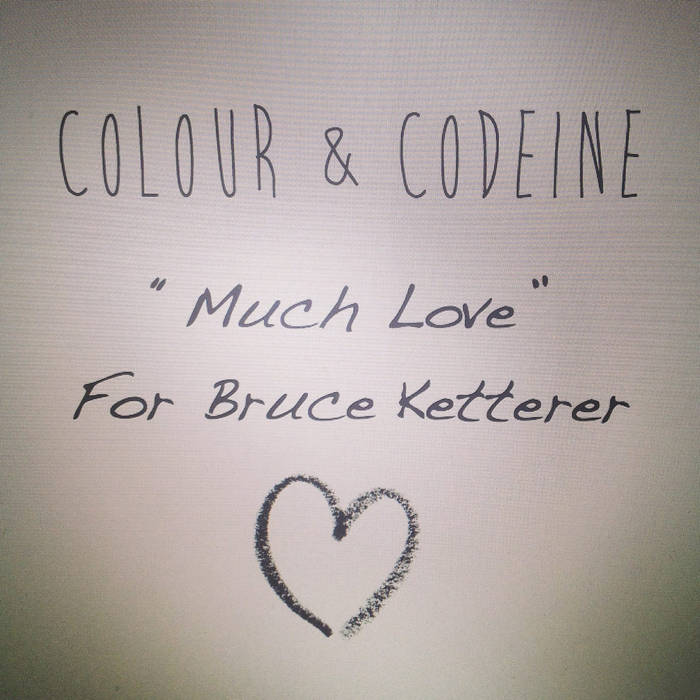 COLOUR & CODEINE
"Much Love"
For Bruce Ketterer